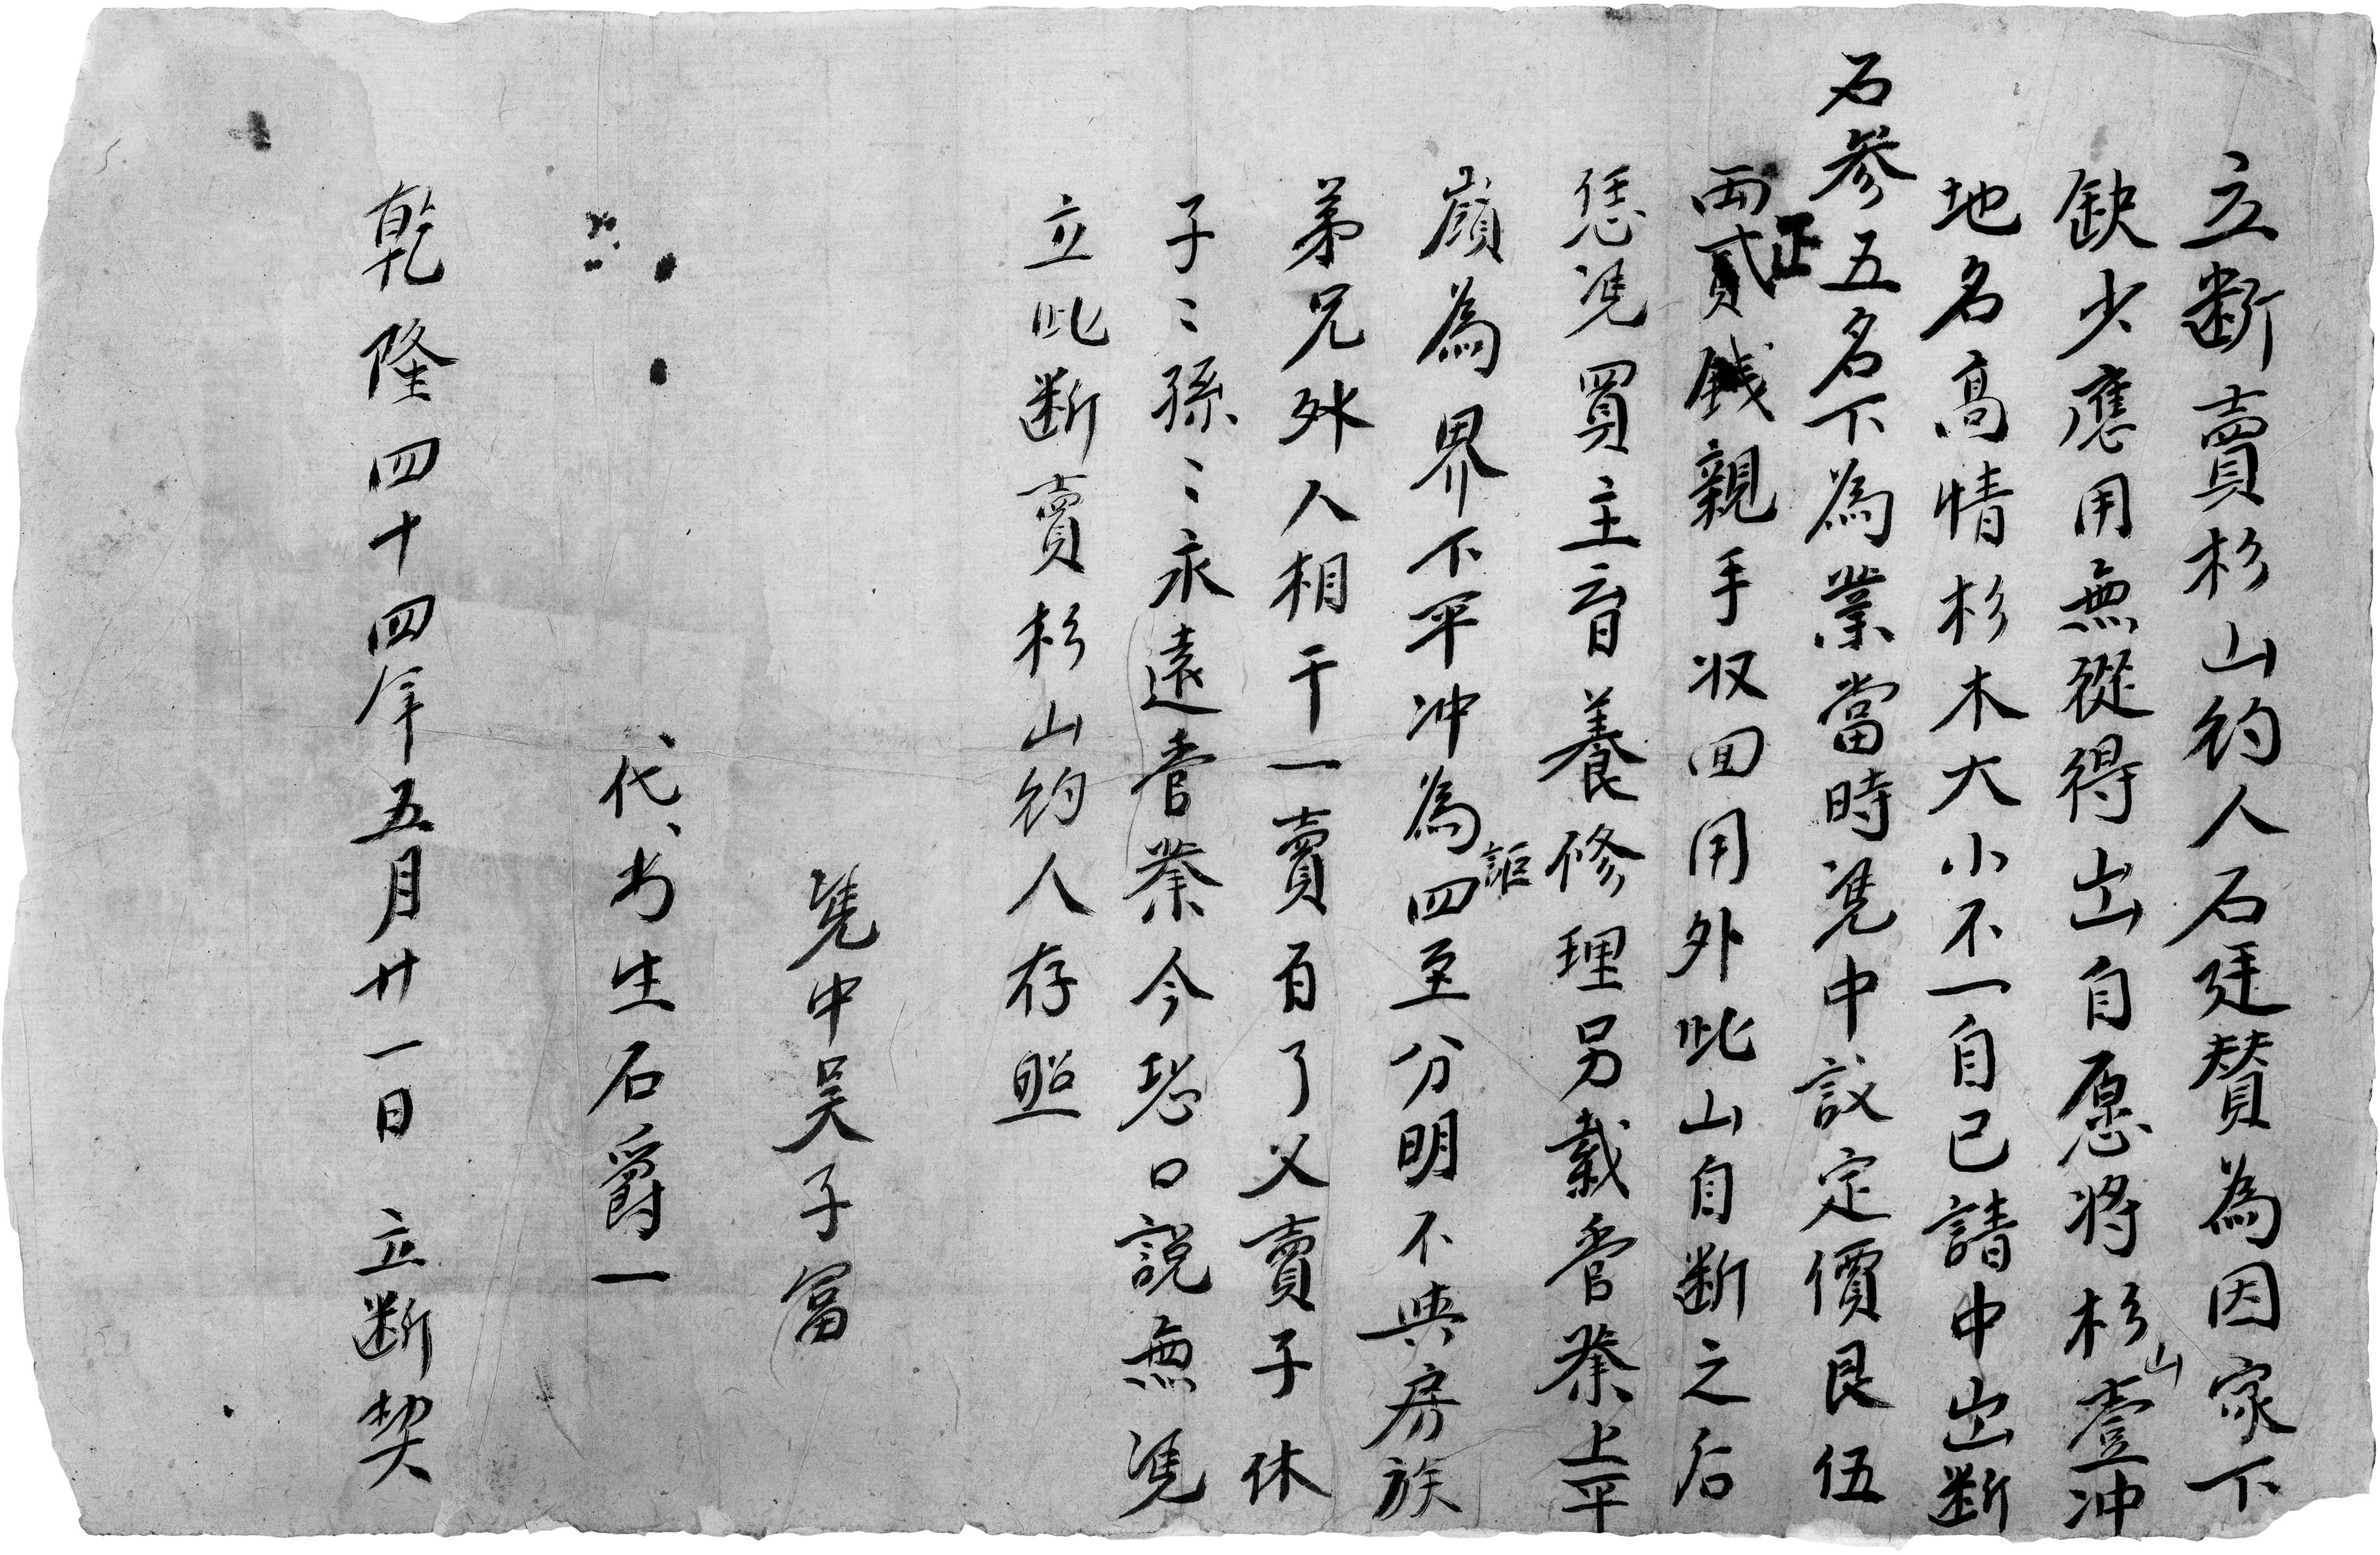 立断賣杉山約人石廷賛為因家下
缺少應用無從得出自愿將杉山壹冲
地名高情杉木大小不一自己請中出断
石参五名下為業當時凴中議定價艮伍
両貳錢正親手収回用外此山自断之后
恁凴買主畜養修理另栽管業上平
嶺為界下平冲為詎四至分明不與房族
弟兄外人相干一賣百了父賣子休
子〻孫〻永遠管業今恐口說無凴
立此断賣杉山約人存照
凴中吴子富
代書生石爵一
乾隆四十四年五月廿一日立断契